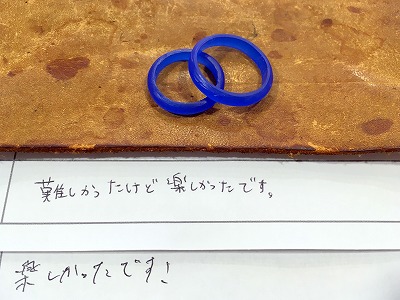 難しかったけど楽しかったです。
楽しかったです!